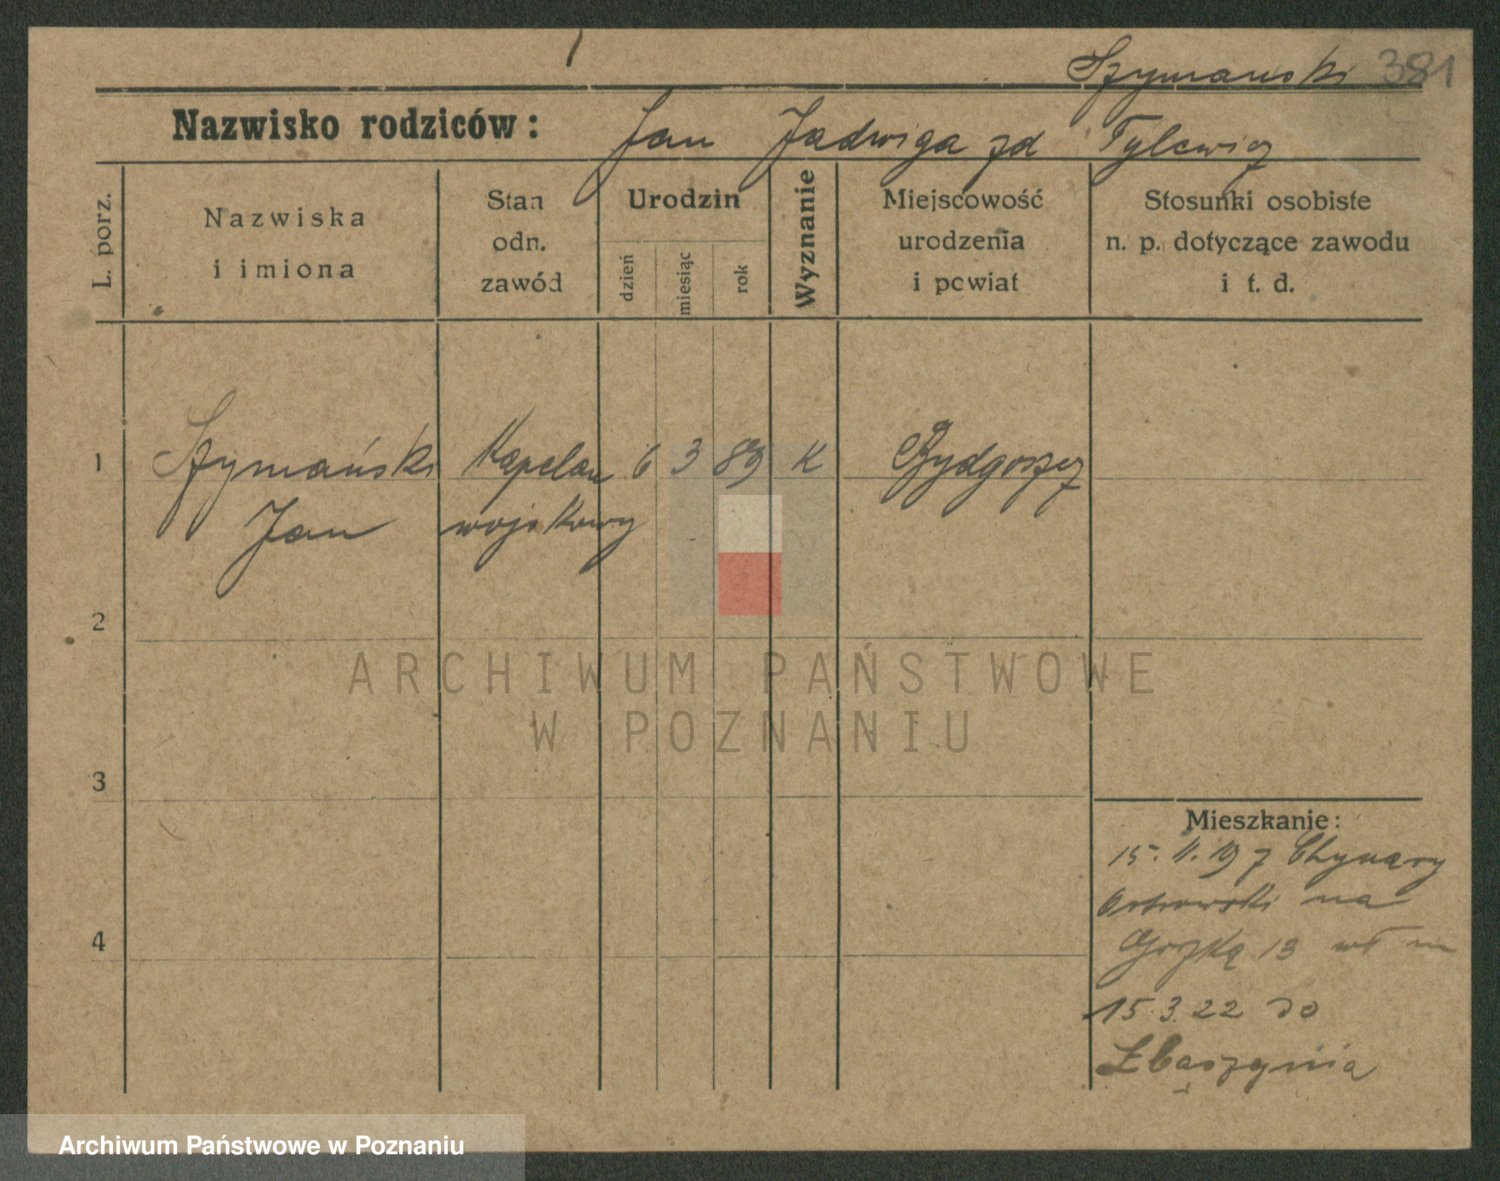 Szymański 381
Nazwisko rodziców: Jan Jadwiga zd Tylewicz
L. porz.
Nazwiska
i imiona
Stan
odn.
zawód
Urodzin
dzień
miesiąc
rok
Wyznanie
Miejscowość
urodzenia
i powiat
Stosunki osobiste
n. p. dotyczące zawodu
i t. d.
1 Szymański Kapelan 6 3 89 K Bydgoszcz
Jan wojskowy
2
3
4
Mieszkanie:
15. 11. 19 z
na
13
15.3.22 do
Zbąszynia
ARCHIWUM PAŃSTWOWE
W POZNANIU
Archiwum Państwowe w Poznaniu